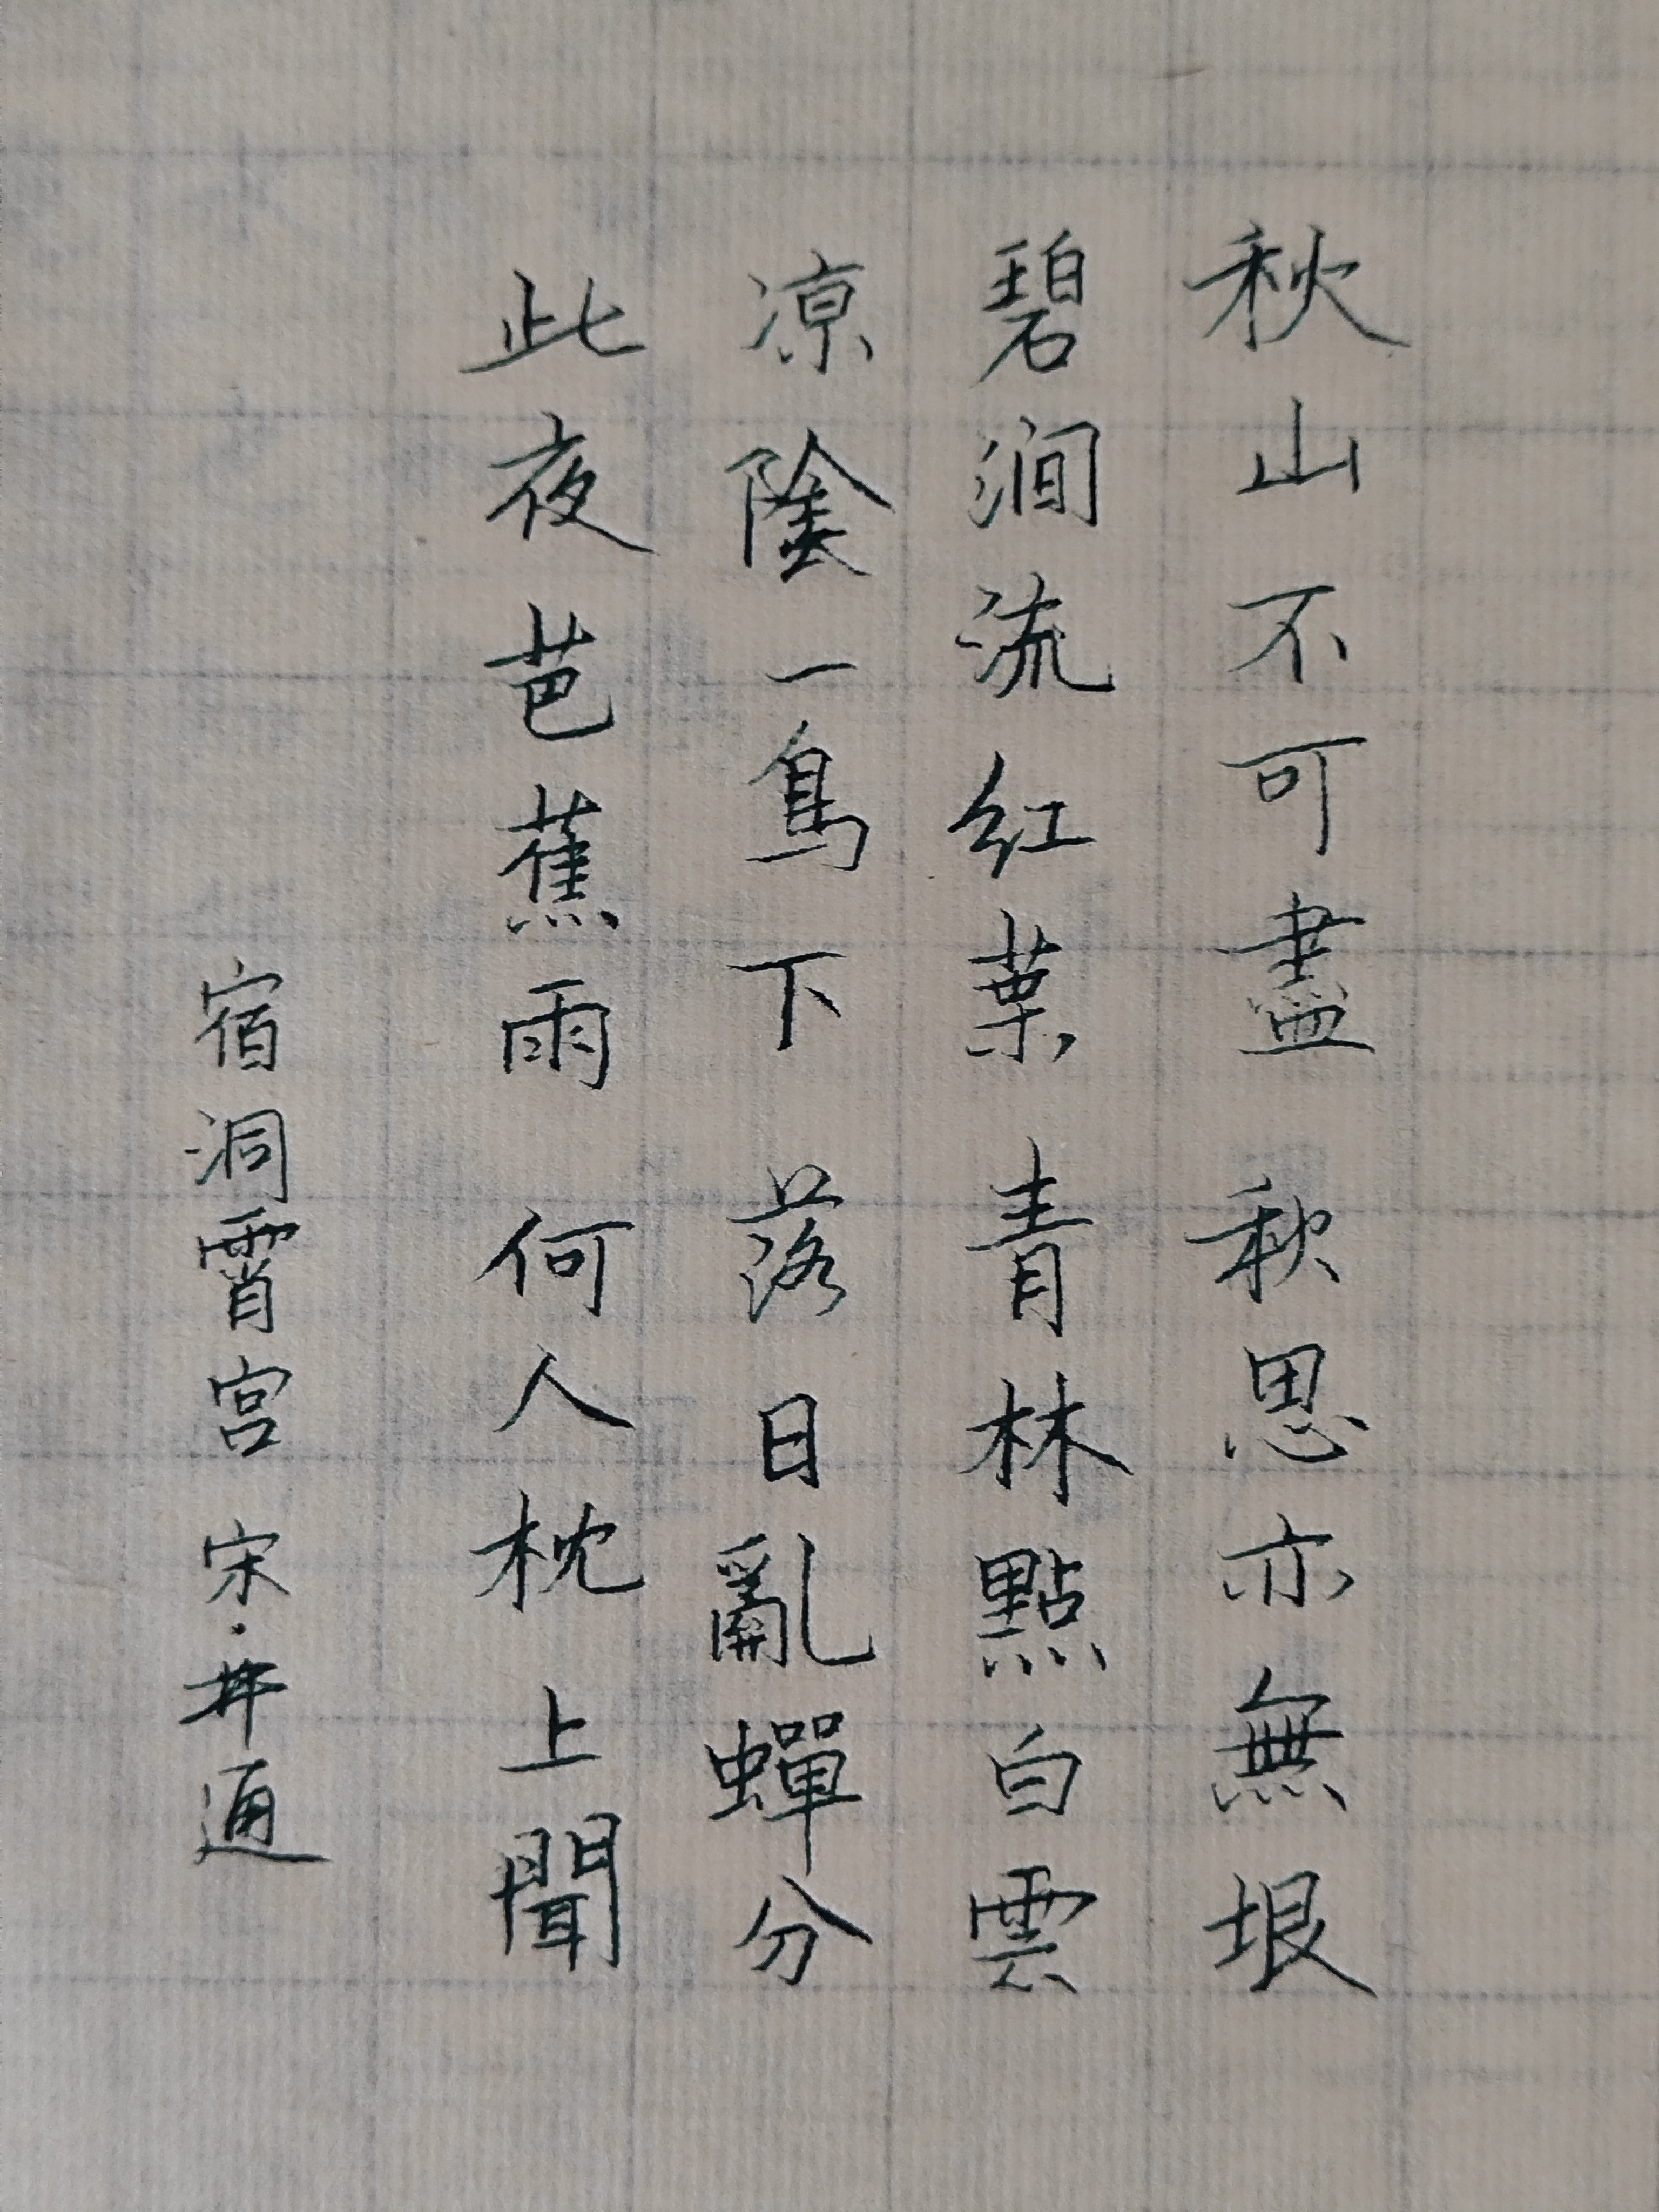 秋山不可盡 秋思亦無垠
碧澗流紅葉 青林點白雲
凉陰一鳥下 落日亂蟬分
此夜芭蕉雨 何人枕上聞
宿洞霄宮 宋·通